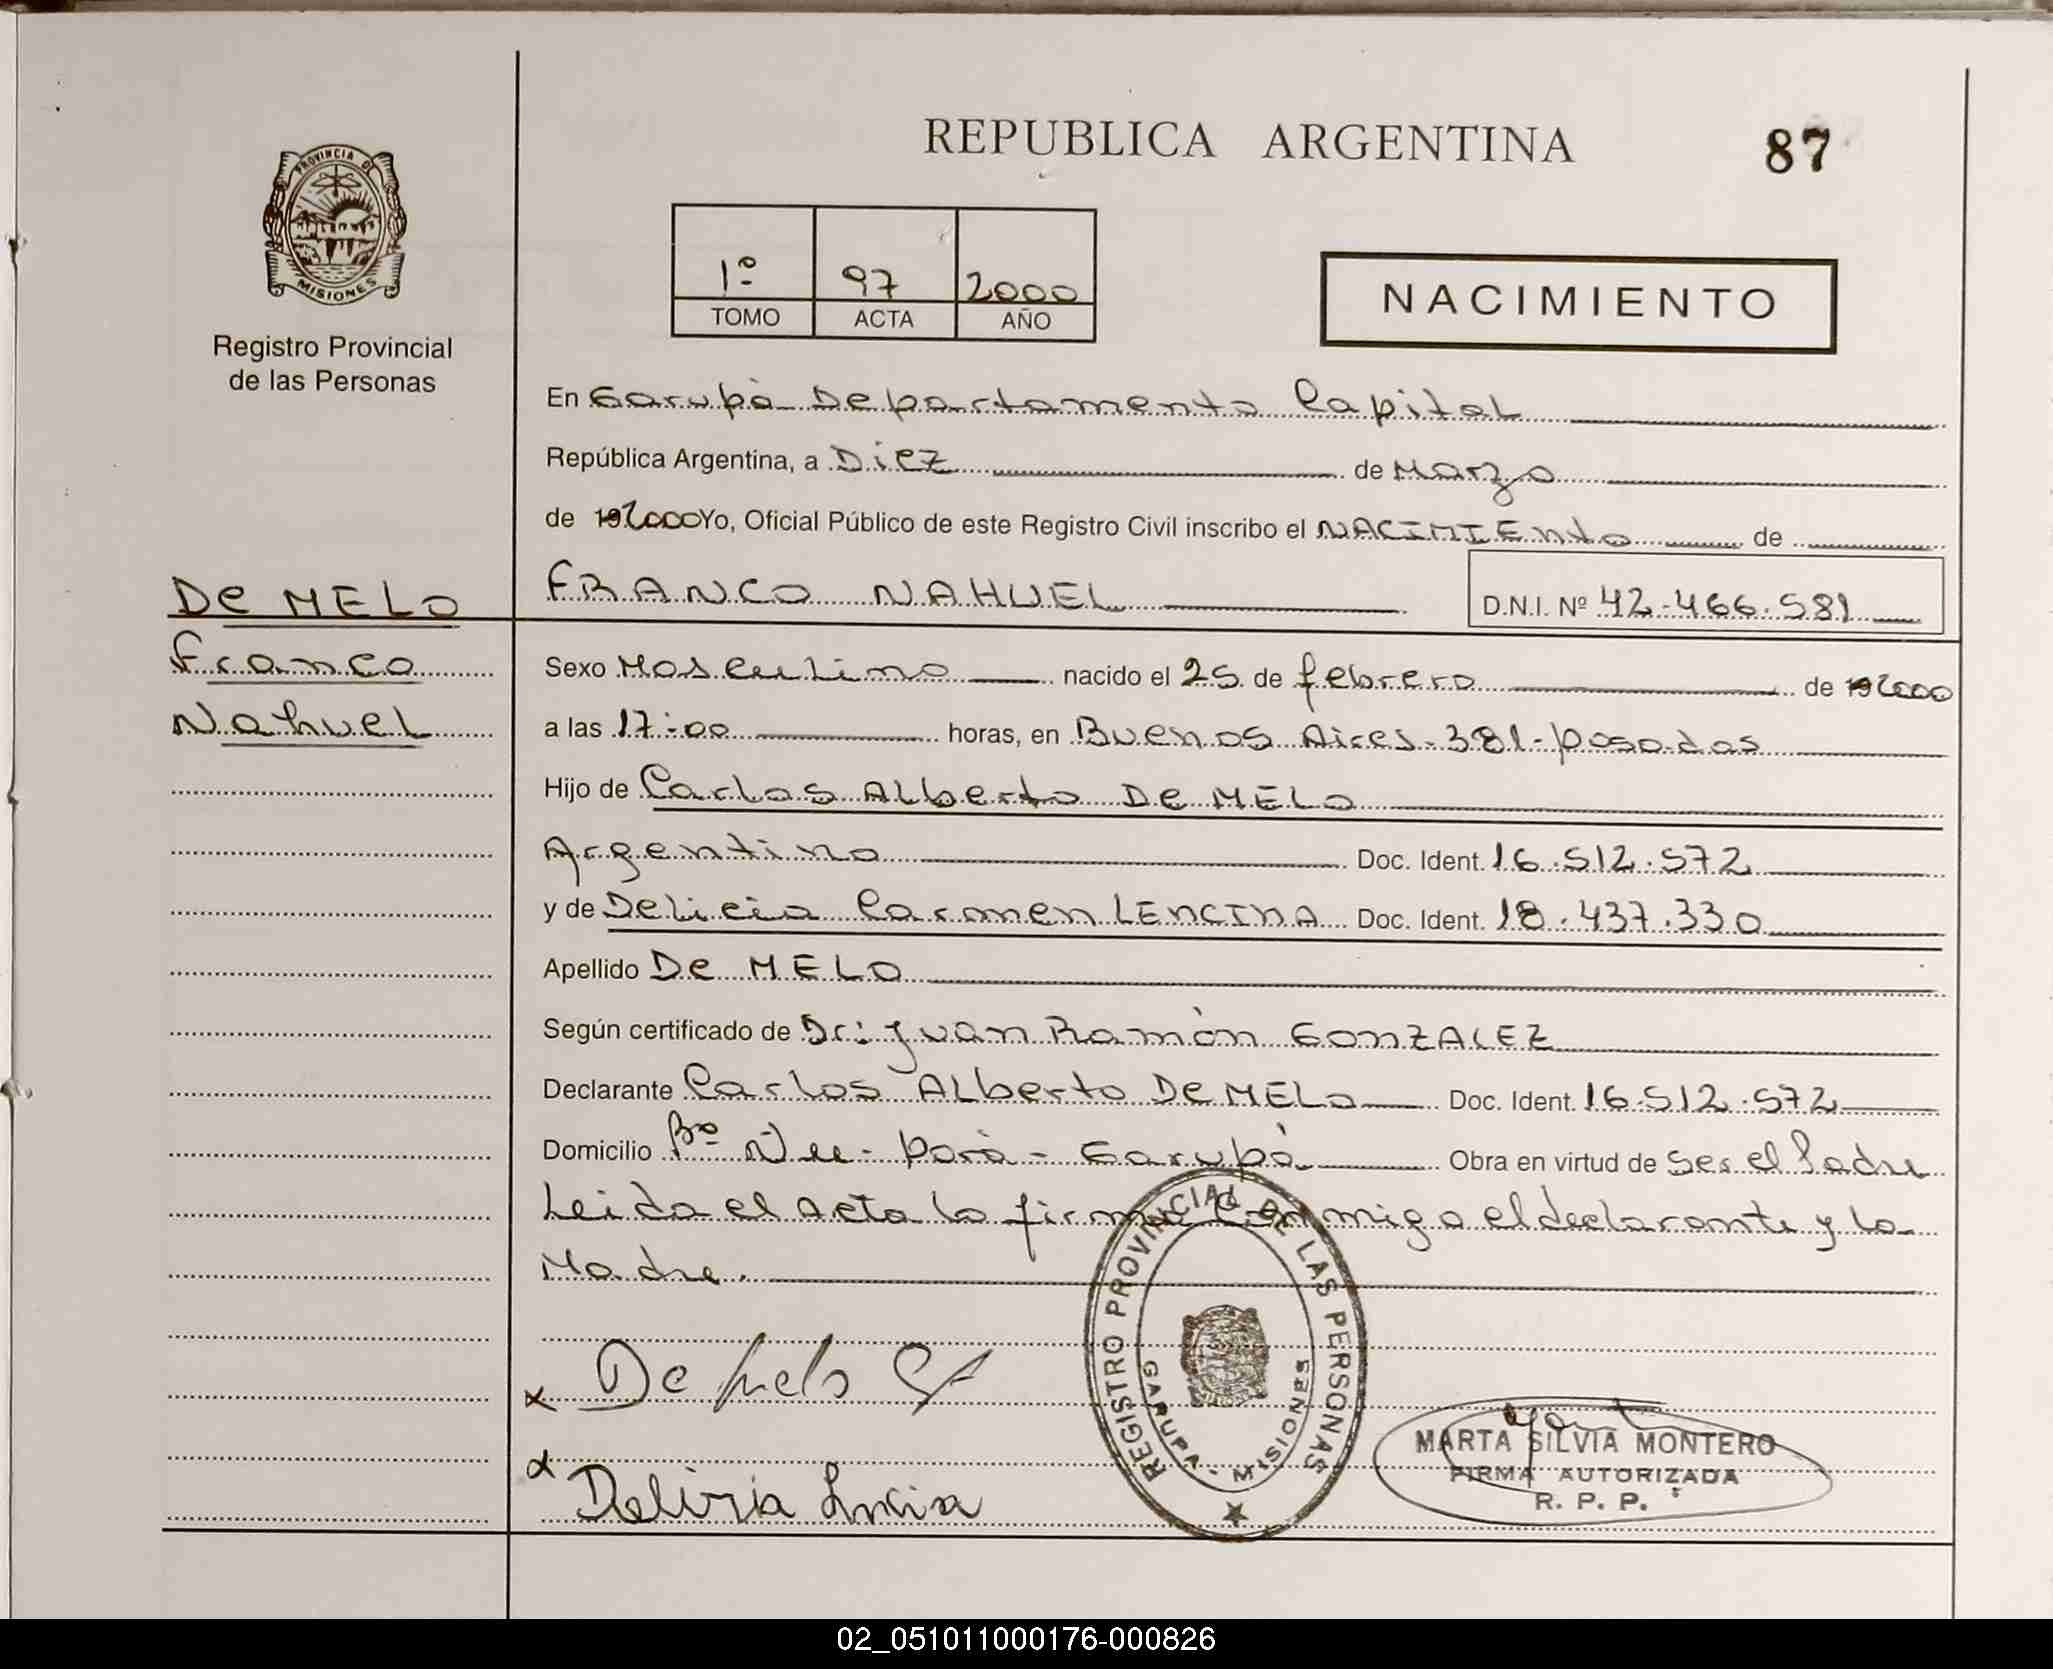 REPUBLICA ARGENTINA
87
PROVINCIA DE
MISIONES
Registro Provincial
de las Personas
1º 97 2000
TOMO ACTA AÑO
NACIMIENTO
En Garupà Departamento Capital
República Argentina, a Diez de Marzo
de 192000 Yo, Oficial Público de este Registro Civil inscribo el NACIMIEnto de
FRANCO NAHUEL D.N.I. Nº 42.466.581
De MELO
Franco
Nahuel
Sexo Masculino nacido el 25 de febrero de 192000
a las 17:00 horas, en Buenos Aires-381-posadas
Hijo de Carlos Alberto De MELO
Argentino Doc. Ident. 16.512.572
y de Delicia Carmen LENCINA Doc. Ident. 18.437.330
Apellido De MELO
Según certificado de Dr: Juan Ramòn GONZALEZ
Declarante Carlos Alberto De MELO Doc. Ident. 16.512.572
Domicilio Bº Ñu-porà-Garupà Obra en virtud de ser el Padre
Leida el acta la firma Conmigo el declarante y la
Madre.
x De Melo
x
REGISTRO PROVINCIAL DE LAS PERSONAS
GARUPA - MISIONES
MARTA SILVIA MONTERO
FIRMA AUTORIZADA
R. P. P.
02_051011000176-000826